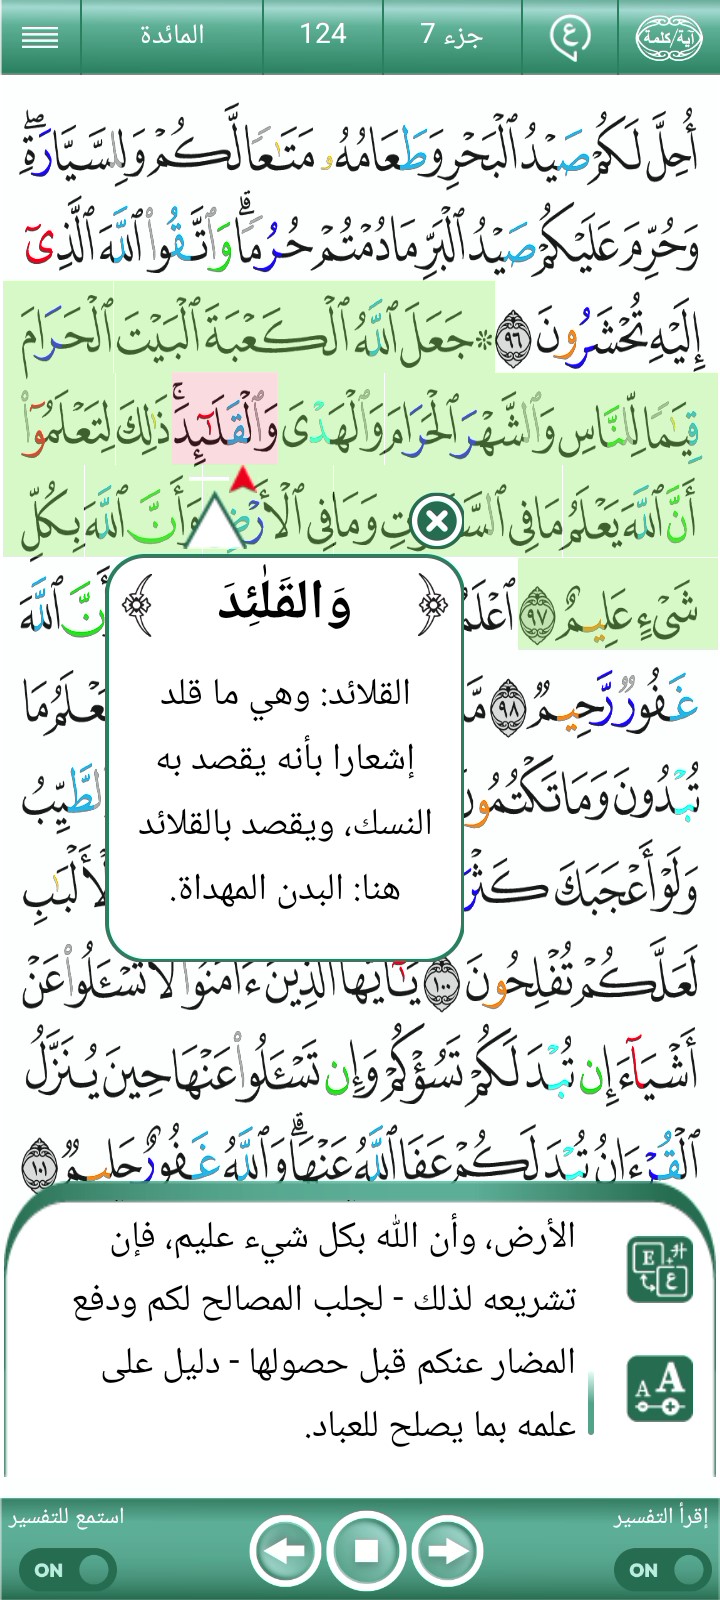 آية/كلمة
ع
جزء 7
124
المائدة
أُحِلَّ لَكُمْ صَيْدُ ٱلْبَحْرِ وَطَعَامُهُۥ مَتَٰعًا لَّكُمْ وَلِلسَّيَّارَةِۖ
وَحُرِّمَ عَلَيْكُمْ صَيْدُ ٱلْبَرِّ مَا دُمْتُمْ حُرُمًاۗ وَٱتَّقُوا۟ ٱللَّهَ ٱلَّذِىٓ
إِلَيْهِ تُحْشَرُونَ ٩٦ ۞ جَعَلَ ٱللَّهُ ٱلْكَعْبَةَ ٱلْبَيْتَ ٱلْحَرَامَ
قِيَٰمًا لِّلنَّاسِ وَٱلشَّهْرَ ٱلْحَرَامَ وَٱلْهَدْىَ وَٱلْقَلَٰٓئِدَۚ ذَٰلِكَ لِتَعْلَمُوٓا۟
أَنَّ ٱللَّهَ يَعْلَمُ مَا فِى وَمَا فِى ٱلْأَرْضِ وَأَنَّ ٱللَّهَ بِكُلِّ
شَىْءٍ عَلِيمٌ ٩٧ ٱعْلَمُ ٱللَّهَ
غَفُورٌ رَّحِيمٌ ٩٨ مَّا تَعْلَمُ مَا
تُبْدُونَ وَمَا تَكْتُمُونَ وَٱلطَّيِّبُ
وَلَوْ أَعْجَبَكَ ٱلْأَلْبَٰبِ
لَعَلَّكُمْ تُفْلِحُونَ ١٠٠ يَٰٓأَيُّهَا ٱلَّذِينَ ءَامَنُوا۟ لَا تَسْـَٔلُوا۟ عَنْ
أَشْيَآءَ إِن تُبْدَ لَكُمْ تَسُؤْكُمْ وَإِن تَسْـَٔلُوا۟ عَنْهَا حِينَ يُنَزَّلُ
ٱلْقُرْءَانُ تُبْدَ لَكُمْ عَفَا ٱللَّهُ عَنْهَاۗ وَٱللَّهُ غَفُورٌ حَلِيمٌ ١٠١
﴿ وَالقَلَٰئِدَ ﴾
القلائد: وهي ما قلد
إشعارا بأنه يقصد به
النسك، ويقصد بالقلائد
هنا: البدن المهداة.
الأرض، وأن الله بكل شيء عليم، فإن
تشريعه لذلك - لجلب المصالح لكم ودفع
المضار عنكم قبل حصولها - دليل على
علمه بما يصلح للعباد.
إقرأ التفسير
استمع للتفسير
ON
ON